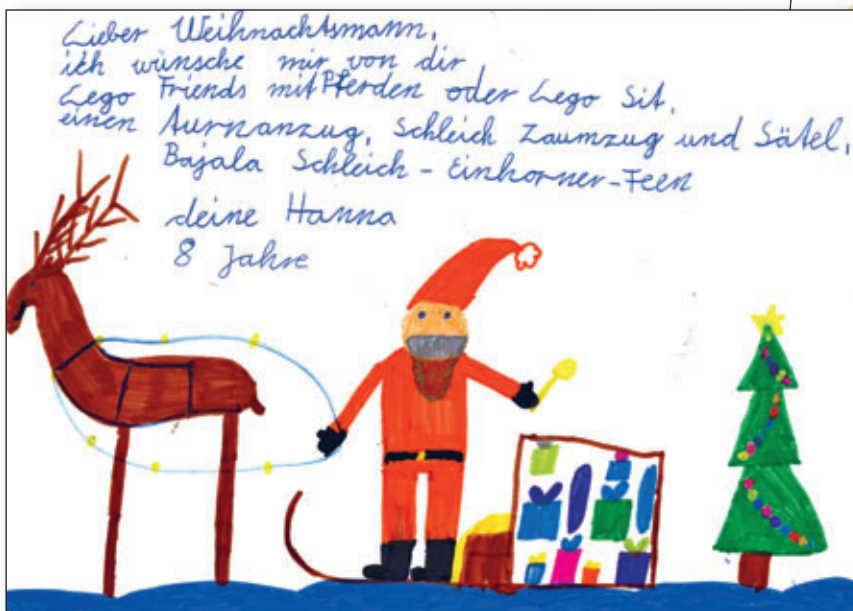 Lieber Weihnachtsmann,
ich wünsche mir von dir
Lego Friends mit Pferden oder Lego Sit,
einen Aurnanzug, Schleich Zaumzug und Sätel,
Bajala Schleich - Einhorner-Feen
deine Hanna
8 Jahre